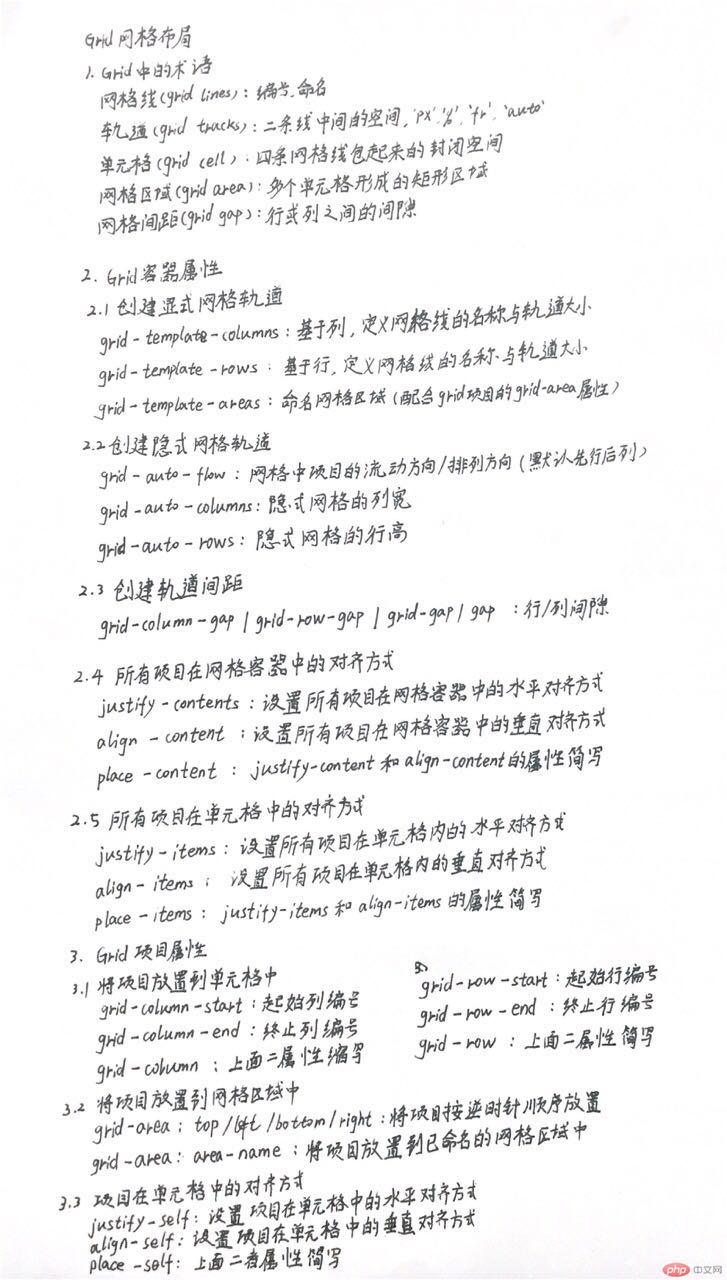 Grid 网格布局
1. Grid中的术语
网格线(grid lines)：编号.命名
轨道(grid tracks)：二条线中间的空间,'px','%','fr','auto'
单元格(grid cell)：四条网格线包起来的封闭空间
网格区域(grid area)：多个单元格形成的矩形区域
网格间距(grid gap)：行或列之间的间隙
2. Grid容器属性
2.1 创建显式网格轨道
grid-template-columns：基于列,定义网格线的名称与轨道大小
grid-template-rows：基于行,定义网格线的名称与轨道大小
grid-template-areas：命名网格区域(配合grid项目的grid-area属性)
2.2创建隐式网格轨道
grid-auto-flow：网格中项目的流动方向/排列方向(默认先行后列)
grid-auto-columns：隐式网格的列宽
grid-auto-rows：隐式网格的行高
2.3 创建轨道间距
grid-column-gap | grid-row-gap | grid-gap | gap ：行/列间隙
2.4 所有项目在网格容器中的对齐方式
justify-contents：设置所有项目在网格容器中的水平对齐方式
align-content：设置所有项目在网格容器中的垂直对齐方式
place-content：justify-content和align-content的属性简写
2.5 所有项目在单元格中的对齐方式
justify-items：设置所有项目在单元格内的水平对齐方式
align-items：设置所有项目在单元格内的垂直对齐方式
place-items：justify-items和align-items的属性简写
3. Grid 项目属性
3.1 将项目放置到单元格中
grid-column-start：起始列编号
grid-column-end：终止列编号
grid-column：上面二属性缩写
grid-row-start：起始行编号
grid-row-end：终止行编号
grid-row：上面二属性简写
3.2 将项目放置到网格区域中
grid-area：top/left/bottom/right：将项目按逆时针顺序放置
grid-area：area-name：将项目放置到已命名的网格区域中
3.3 项目在单元格中的对齐方式
justify-self：设置项目在单元格中的水平对齐方式
align-self：设置项目在单元格中的垂直对齐方式
place-self：上面二者属性简写
php 中文网